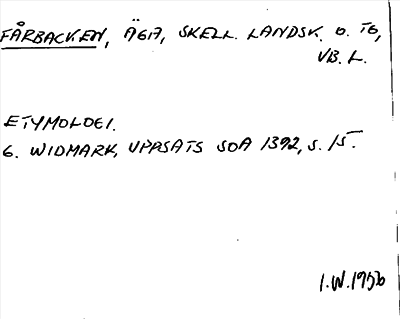 FÅRBACKEN, ÄGA, SKELL. LANDSK. O. TG,
VB. L.
ETYMOLOGI.
G. WIDMARK, UPPSATS SOA 1392, S. 15.
I.W. 1956